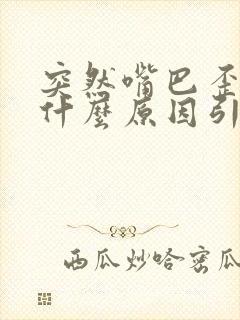 突然嘴巴歪
什麼原因引
西瓜炒哈密瓜